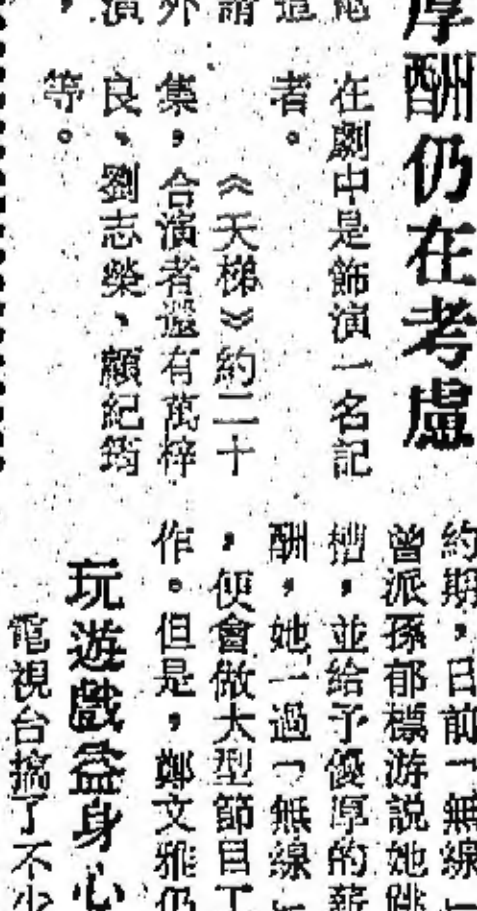 厚酬仍在考慮
在劇中是飾演一名記
者。
《天梯》約二十
集，合演者還有萬梓
良、劉志榮、顧紀筠
等。
約期，日前「無線」
曾派孫郁標游説她跳
槽，並給予優厚的薪
酬，她一過「無線」
，便會做大型節目工
作。但是，鄭文雅仍
玩遊戲益身心
電視台搞了不少